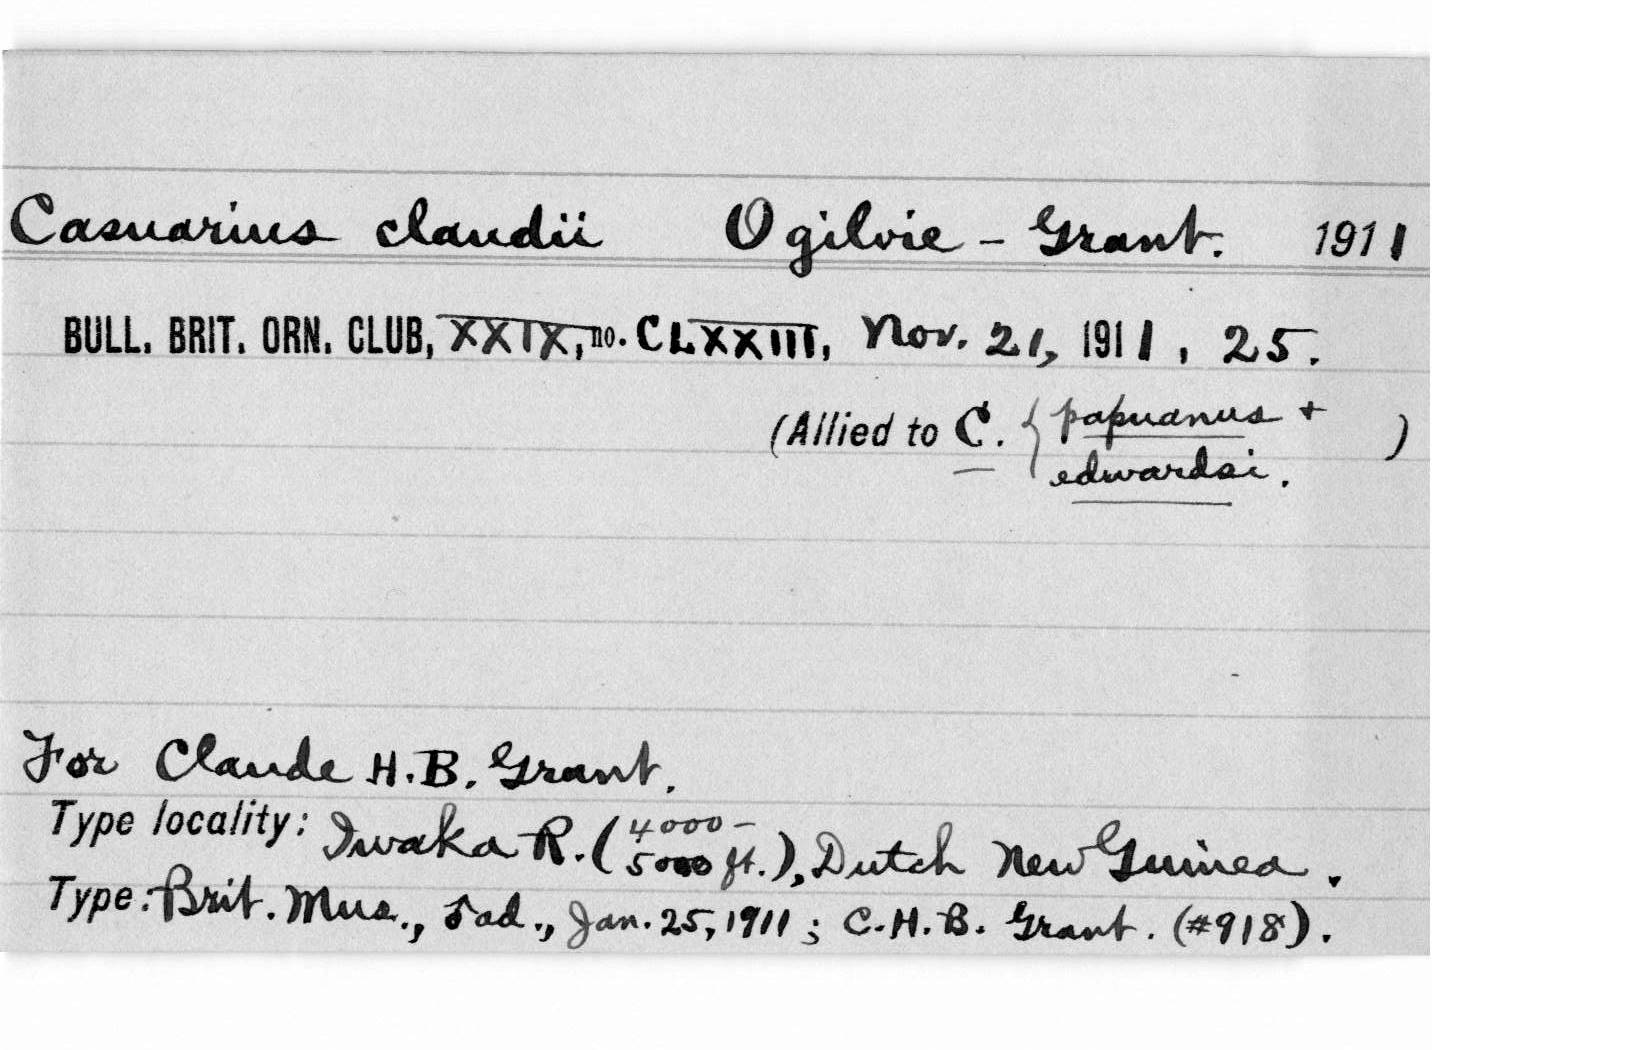 Casuarius claudii Ogilvie-Grant. 1911
BULL. BRIT. ORN. CLUB, XXIX, no. CLXXIII, Nov. 21, 1911, 25.
(Allied to C. { papuanus + )
edwardsi.
For Claude H.B. Grant.
Type locality: Iwaka R. (4000-5000 ft.), Dutch New Guinea.
Type: Brit. Mus., ♂ ad., Jan. 25, 1911; C.H.B. Grant. (#918).